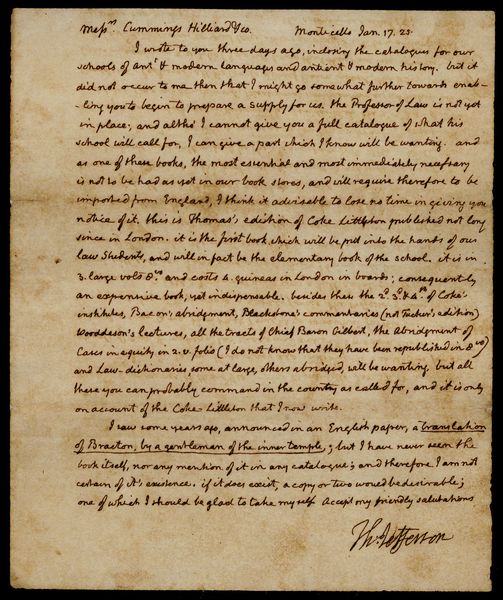 Mess.rs Cummings Hilliard & co. Monticello Jan. 17. 25.
I wrote to you three days ago, inclosing the catalogues for our
schools of ant.t & modern languages and antient & modern history. but it
did not occur to me then that I might go somewhat further towards enab-
-ling you to begin to prepare a supply for us. the Professor of Law is not yet
in place, and altho' I cannot give you a full catalogue of what his
school will call for, I can give a part which I know will be wanting. and
as one of these books, the most essential and most immediately necessary
is not to be had as yet in our book stores, and will require therefore to be
imported from England, I think it advisable to lose no time in giving you
notice of it. this is Thomas's edition of Coke Littleton published not long
since in London. it is the first book which will be put into the hands of our
law Students, and will in fact be the elementary book of the school. it is in
3. large vols 8.vo and costs 4. guineas in London in boards; consequently
an expensive book, yet indispensable. besides these the 2.d 3.d & 4.th of Coke's
institutes, Bacon's abridgment, Blackstone's commentaries (not Tucker's edition)
Wooddeson's lectures, all the tracts of Chief Baron Gilbert, the Abridgment of
Cases in equity in 2. v. folio (I do not know that they have been republished in 8vo)
and Law-dictionaries some at large, others abridged, will be wanting, but all
these you can probably command in the country as called for, and it is only
on account of the Coke Littleton that I now write.
I saw some years ago, announced in an English paper, a translation
of Bracton, by a gentleman of the inner temple; but I have never seen the
book itself, nor any mention of it in any catalogue; and therefore I am not
certain of it's existence. if it does exist, a copy or two would be desirable;
one of which I should be glad to take myself. Accept my friendly salutations
Th: Jefferson